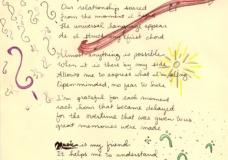 Our relationship soared
from the moment it
the universal language appears
as it struck its first chord
Almost anything is possible
when it is there by my side
Allows me to express what I'm feeling
Open-minded, no fear to hide
I'm grateful for each moment
each hour that became delayed
for the overtime that was given
great memories were made
Music is my friend
It helps me to understand